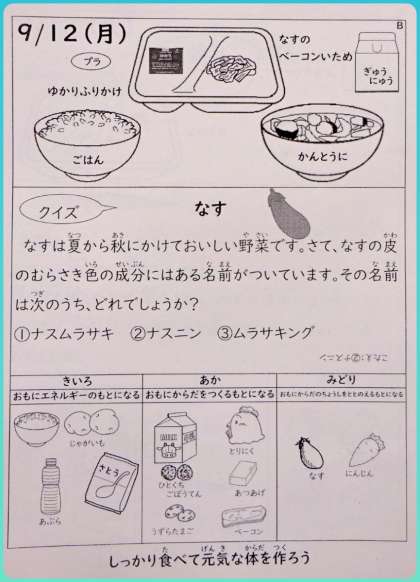 9/12(月)
B
プラ
ゆかりふりかけ
なすの
ベーコンいため
ぎゅう
にゅう
ごはん
かんとうに
クイズ
なす
なすは夏から秋にかけておいしい野菜です。さて、なすの皮
のむらさき色の成分にはある名前がついています。その名前
は次のうち、どれでしょうか？
①ナスムラサキ ②ナスニン ③ムラサキング
こたえ：②ナスニン
きいろ
おもにエネルギーのもとになる
じゃがいも
さとう
あぶら
あか
おもにからだをつくるもとになる
とりにく
ひとくち
ごぼうてん
あつあげ
うずらたまご
ベーコン
みどり
おもにからだのちょうしをととのえるもとになる
なす
にんじん
しっかり食べて元気な体を作ろう